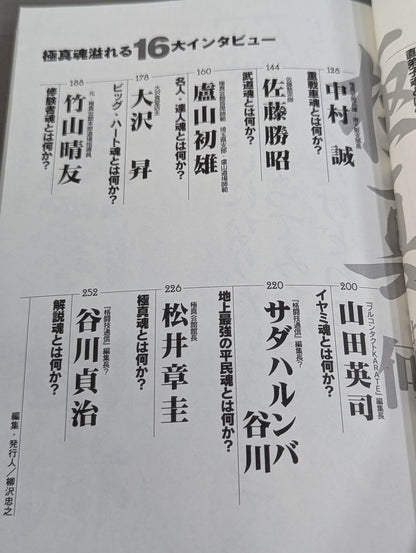 極真魂溢れる16大インタビュー
128
中村 誠
重戦車魂とは何か?
144
佐藤勝昭
武道魂とは何か?
160
盧山初雄
名人・達人魂とは何か?
178
大沢 昇
ビッグ・ハート魂とは何か?
188
竹山晴友
修験者魂とは何か?
200
『フルコンタクトKARATE』編集長
山田英司
イヤミ魂とは何か?
220
『格闘技通信』編集長?
サダハルンバ谷川
地上最強の平民魂とは何か?
226
極真会館館長
松井章圭
極真魂とは何か?
252
『格闘技通信』編集長?
谷川貞治
解説魂とは何か?
編集・発行人/柳沢忠之